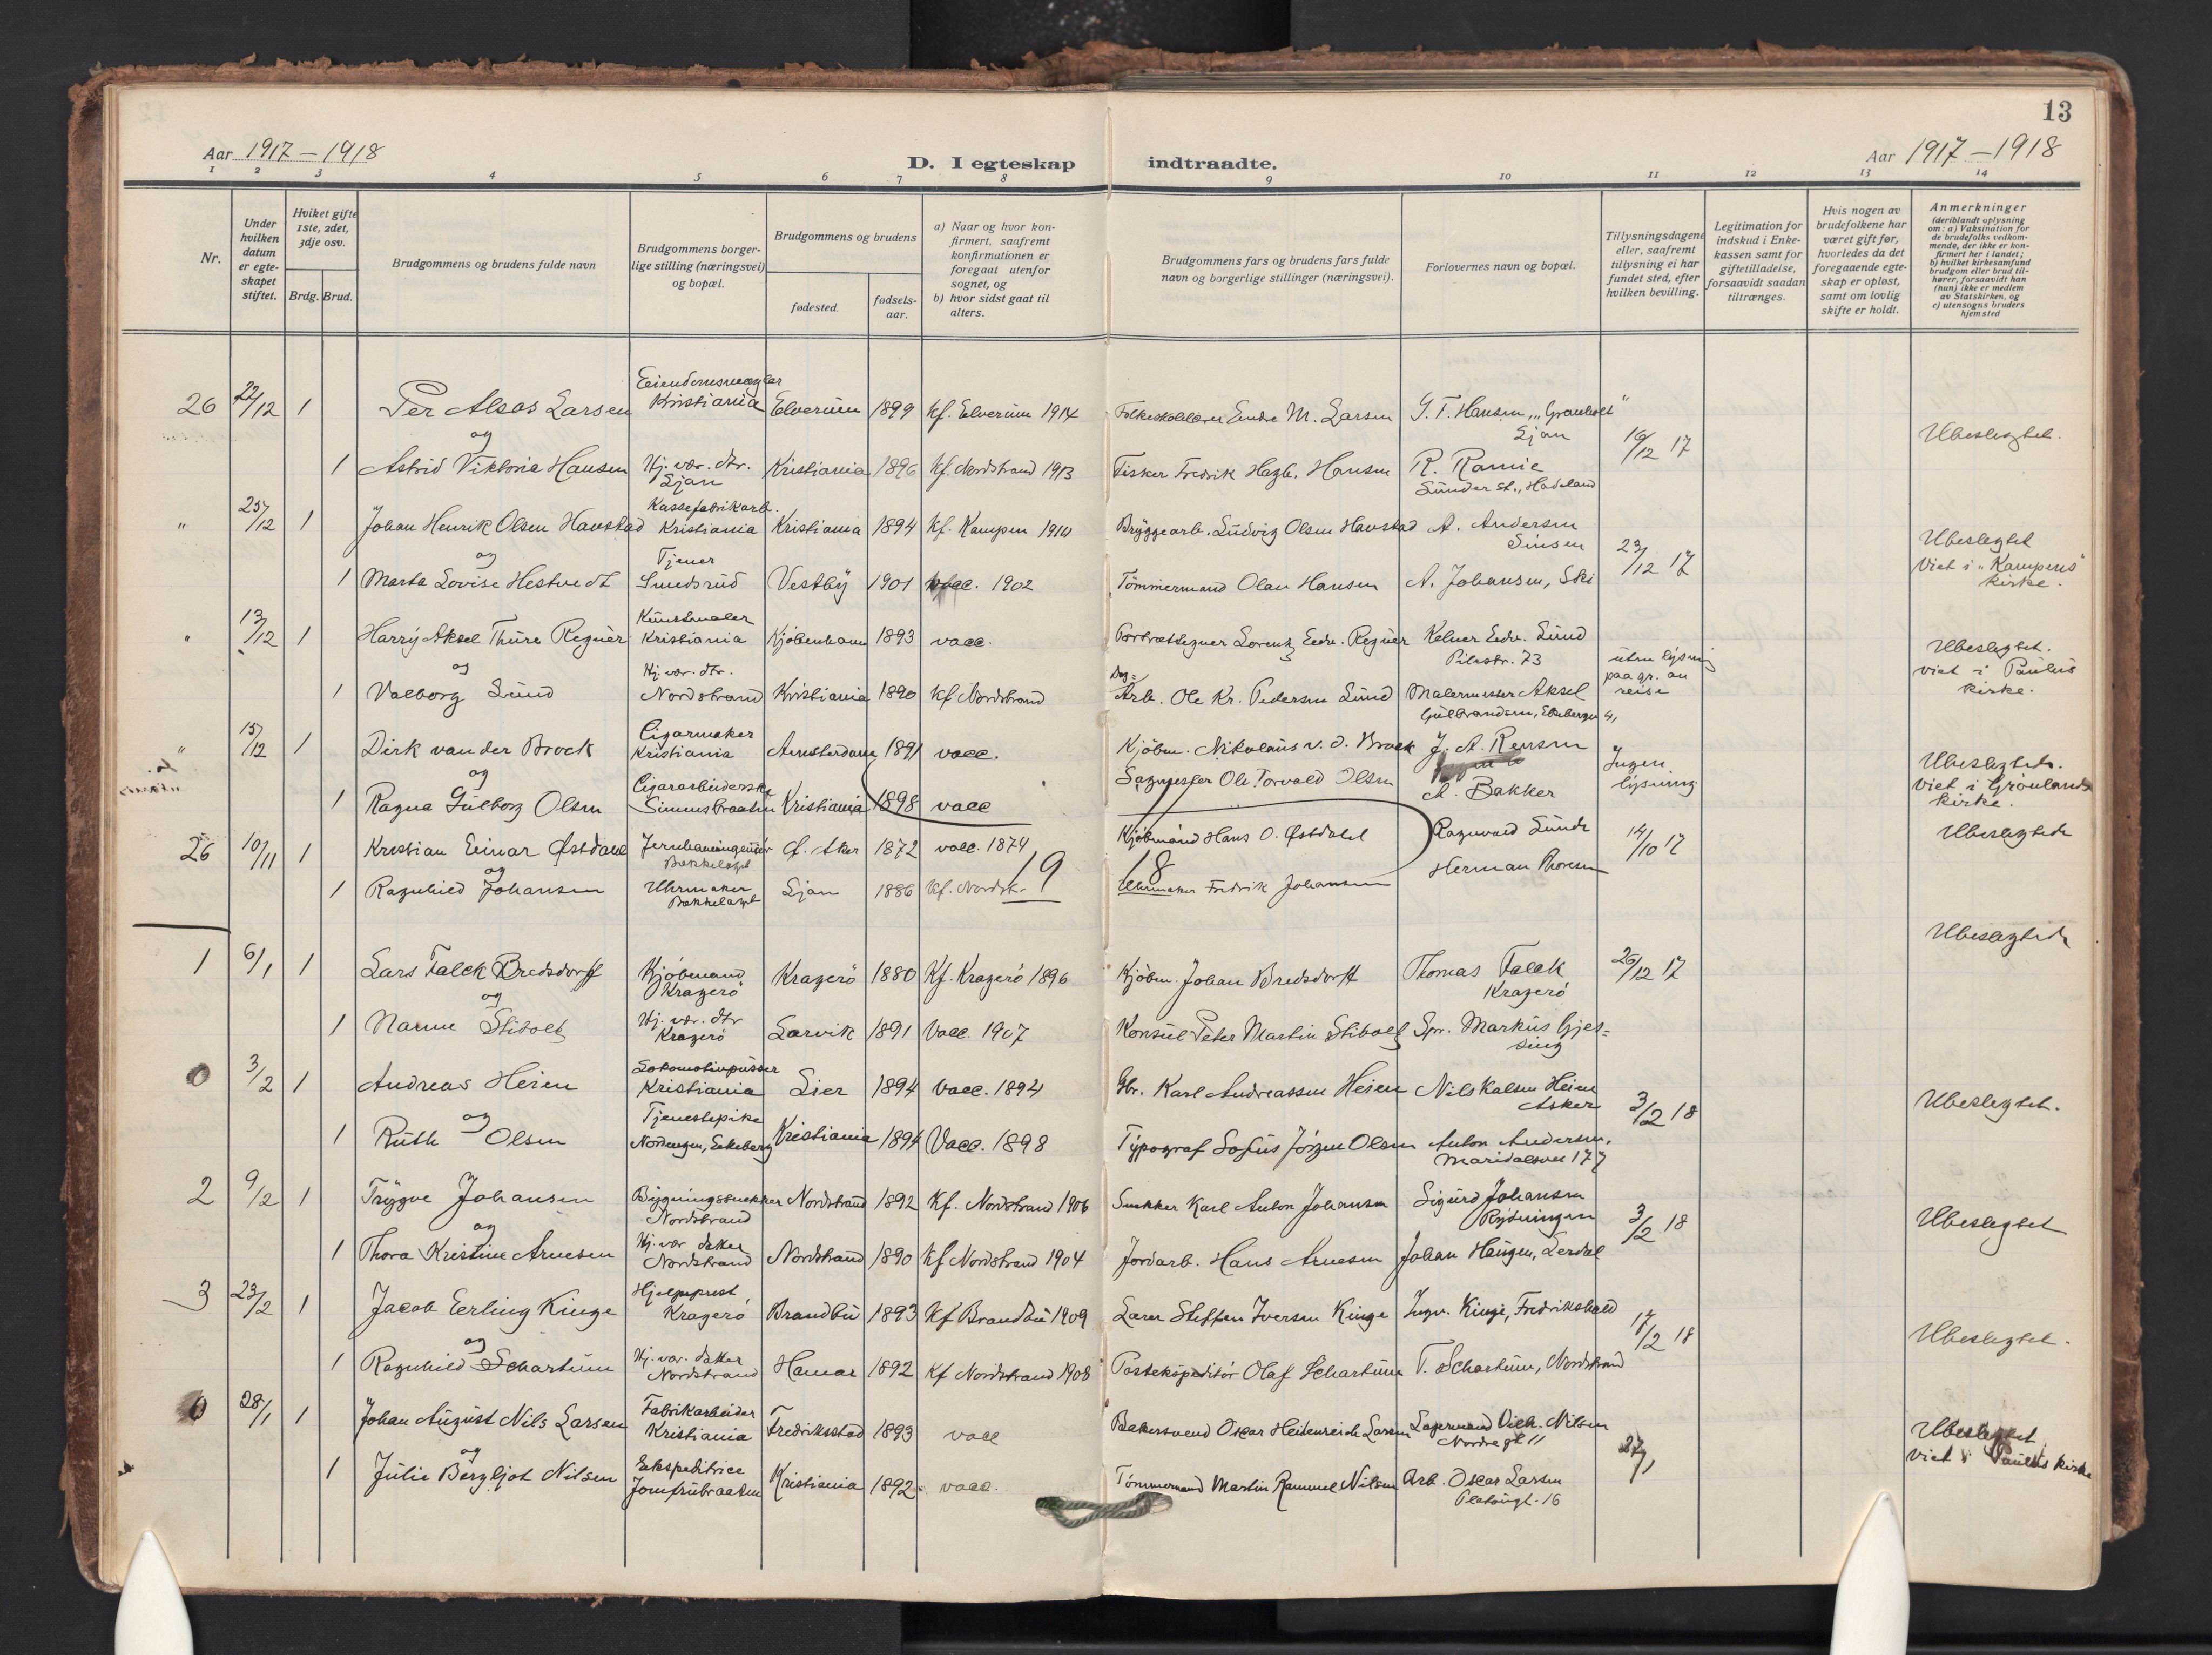 13
Aar 1917-1918
D. I egteskap indtraadte.
Aar 1917-1918
1 2 3 4 5 6 7 8 9 10 11 12 13 14
Nr.
Under hvilken datum er egteskapet stiftet.
Hviket gifte 1ste, 2det, 3dje osv.
Brdg. Brud.
Brudgommens og brudens fulde navn
Brudgommens borgerlige stilling (næringsvei) og bopæl.
Brudgommens og brudens
fødested.
fødselsaar.
a) Naar og hvor konfirmert, saafremt konfirmationen er foregaat utenfor sognet, og
b) hvor sidst gaat til alters.
Brudgommens fars og brudens fars fulde navn og borgerlige stillinger (næringsvei).
Forlovernes navn og bopæl.
Tillysningsdagene eller, saafremt tillysning ei har fundet sted, efter hvilken bevilling.
Legitimation for indskud i Enkekassen samt for giftetilladelse, forsaavidt saadan tiltrænges.
Hvis nogen av brudefolkene har været gift før, hvorledes da det foregaaende egteskap er opløst, samt om lovlig skifte er holdt.
Anmerkninger
(deriblandt oplysning om: a) Vaksination for de brudefolks vedkommende, der ikke er konfirmert her i landet; b) hvilket kirkesamfund brudgom eller brud tilhører, forsaavidt han (hun) ikke er medlem av Statskirken, og c) utensogns bruders hjemsted
26 22/12 1 Per Alsos Larsen Eiendomsmægler Kristiania Elverum 1899 kf. Elverum 1914 Folkeskolelærer Endre M. Larsen G. T. Hansen, "Granholt" Ljan 16/12 17 Ubeslegtet.
og
1 Astrid Viktoria Hansen Hj. vær. dtr. Ljan Kristiania 1896 kf. Nordstrand 1913 Fisker Fredrik Hagb. Hansen R. Ramie Lunder st., Hadeland
" 25/12 1 Johan Henrik Olsen Haustad Kassefabrikarb. Kristiania Kristiania 1894 kf. Kampen 1910 Bryggearb. Ludvig Olsen Haustad A. Andersen Sinsen 23/12 17 Ubeslegtet Viet i "Kampens" kirke.
og
1 Marta Lovise Hestvedt Tjener Smedsrud Vestby 1901 vacc. 1902 Tømmermand Olau Hansen A. Johansen, Ski
" 13/12 1 Harry Aksel Thure Regner Kunstmaler Kristiania Kjøbenhavn 1893 vacc. Portrættegner Lorentz Edv. Regner Kelner Edv. Lund Pilestr. 73 uten lysning paa gr. av reise Ubeslegtet. viet i Paulus kirke.
og
1 Valborg Lund Hj. vær. dtr. Nordstrand Kristiania 1890 kf Nordstrand Dag= Arb. Ole Kr. Pedersen Lund Malermester Aksel Gulbrandsen, Ekebergv 4,
" 15/12 1 Dirk van der Broek Cigarmaker Kristiania Amsterdam 1891 vacc. Kjøbm. Nikolaus v. d. Broek J. A. Rensen Ingen lysning Ubeslegtet. viet i Grønlands kirke.
og
1 Ragna Gulborg Olsen Cigararbeiderske Simensbraaten Kristiania 1898 vacc Sagmester Ole Torvald Olsen A. Bakker
26 10/11 1 Kristian Einar Østdahl Jernbaneingeniør Bekkelaget Ø. Aker 1872 vacc. 1874 Kjøbmand Hans O. Østdahl Ragnvald Sunde 14/10 17 Ubeslegtede
og
1 Ragnhild Johansen Uhrmaker Bekkelaget Ljan 1886 kf. Nordstr. Uhrmaker Fredrik Johansen Herman Thoresen
19 18
1 6/1 1 Lars Falck Bredsdorff Kjøbmand Kragerø Kragerø 1880 Kf. Kragerø 1896 Kjøbm. Johan Bredsdorff Thomas Falck Kragerø 26/12 17 Ubeslegtede
og
1 Nanne Stibolt Hj. vær. dtr Kragerø Larvik 1891 Vacc. 1907 Konsul Peter Martin Stibolt Spr. Markus Gjessing
0 3/2 1 Andreas Heien Lokomotivpusser Kristiania Lier 1894 Vacc. 1894 Gbr. Karl Andreassen Heien Nils Kalsen Heien Asker 3/2 18 Ubeslegtet.
og
1 Ruth Olsen Tjenestepike Norengen, Ekeberg Kristiania 1894 Vacc. 1898 Typograf Sofus Jørgen Olsen Anton Andersen, Maridalsvei 177
2 9/2 1 Trygve Johansen Bygningssnekker Nordstrand Nordstrand 1892 Kf. Nordstrand 1906 Snekker Karl Anton Johansen Sigurd Johansen Rydningen 3/2 18 Ubeslegtet
og
1 Thora Kristine Arnesen Hj. vær datter Nordstrand Nordstrand 1890 Kf Nordstrand 1904 Jordarb. Hans Arnesen Johan Haugen, Lerdal
3 23/2 1 Jacob Erling Kinge Hjelpeprest Kragerø Brandbu 1893 Kf Brandbu 1909 Lærer Steffen Iversen Kinge Ingv. Kinge, Fredrikshald 17/2 18 Ubeslegtet.
og
1 Ragnhild Schartum Hj. vær. datter Nordstrand Hamar 1892 Kf Nordstrand 1908 Postekspeditør Olaf Schartum T. Schartum, Nordstrand
0 28/1 1 Johan August Nils Larsen Fabrikarbeider Kristiania Fredriksstad 1893 vacc Bakersvend Oscar Heidenreich Larsen Lagermand Vilh. Nilsen Nordregt 11 27/1 Ubeslegtet viet i Paulus kirke
og
1 Julie Bergljot Nilsen Ekspeditrice Jomfrubraaten Kristiania 1892 vacc. Tømmermand Martin Rammel Nilsen Arb. Oscar Larsen Platougt. 16